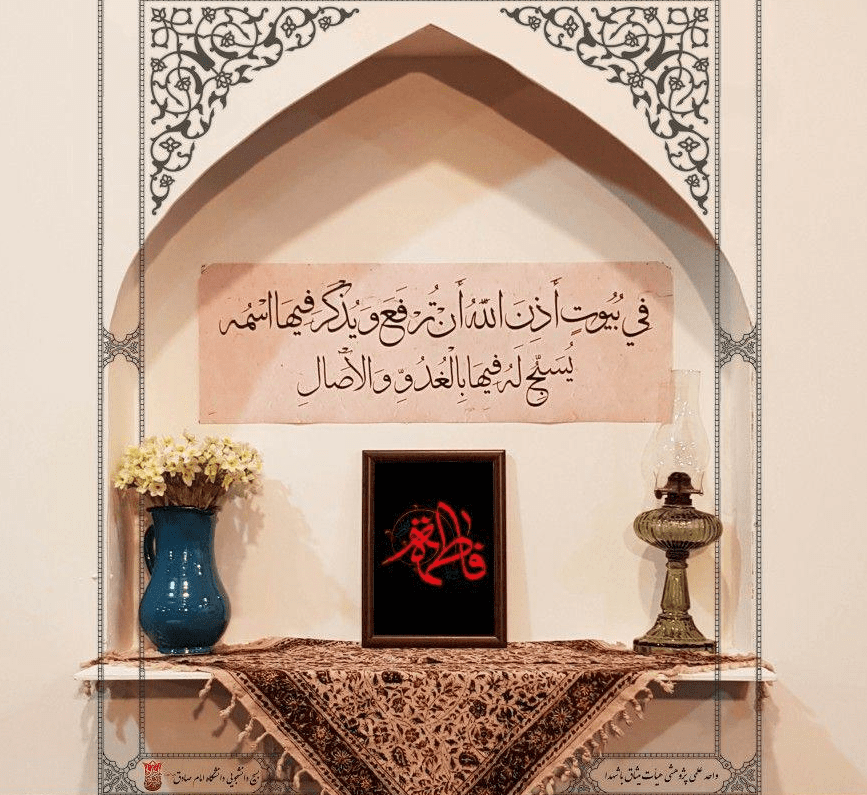 في بُيُوتٍ أَذِنَ اللّٰهُ أَنْ تُرْفَعَ وَيُذْكَرَ فِيهَا اسْمُهُ
يُسَبِّحُ لَهُ فِيهَا بِالْغُدُوِّ وَالْآصَالِ
فاطمة
واحد علمی پژوهشی هیأت میثاق با شهدا
بسیج دانشجویی دانشگاه امام صادق